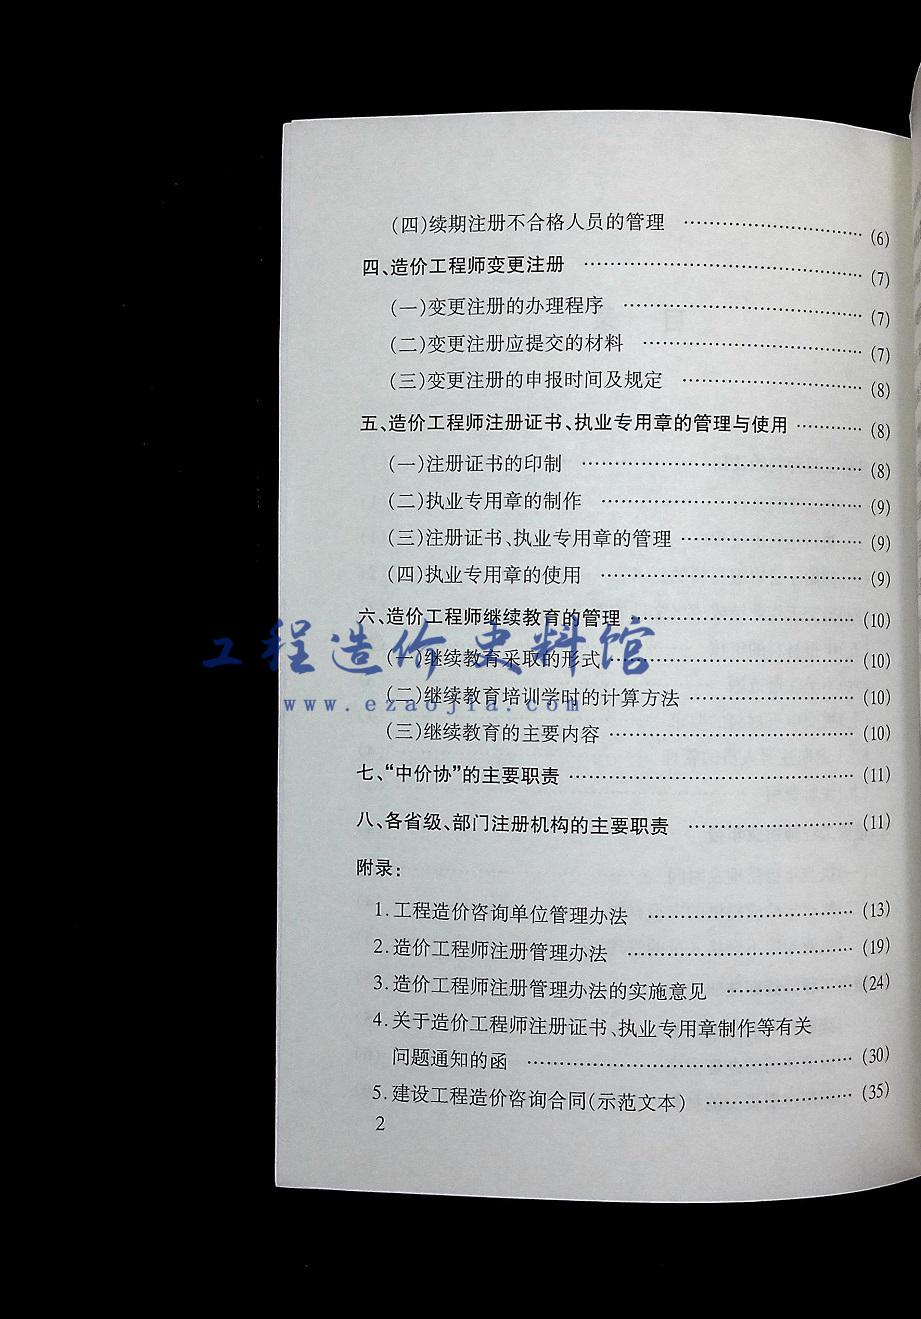 (四)续期注册不合格人员的管理 ………………………… (6)
四、造价工程师变更注册 ………………………………… (7)
(一)变更注册的办理程序 ……………………………… (7)
(二)变更注册应提交的材料 …………………………… (7)
(三)变更注册的申报时间及规定 ……………………… (8)
五、造价工程师注册证书、执业专用章的管理与使用 ………… (8)
(一)注册证书的印制 …………………………………… (8)
(二)执业专用章的制作 ………………………………… (9)
(三)注册证书、执业专用章的管理 ……………………… (9)
(四)执业专用章的使用 ………………………………… (9)
六、造价工程师继续教育的管理 …………………………… (10)
工程造价史料馆
(一)继续教育采取的形式 ……………………………… (10)
(二)继续教育培训学时的计算方法 …………………… (10)
www.ezaojia.com
(三)继续教育的主要内容 ……………………………… (10)
七、“中价协”的主要职责 ………………………………… (11)
八、各省级、部门注册机构的主要职责 …………………… (11)
附录:
1.工程造价咨询单位管理办法 ………………………… (13)
2.造价工程师注册管理办法 …………………………… (19)
3.造价工程师注册管理办法的实施意见 ……………… (24)
4.关于造价工程师注册证书、执业专用章制作等有关
问题通知的函 ………………………………………… (30)
5.建设工程造价咨询合同(示范文本) ………………… (35)
2